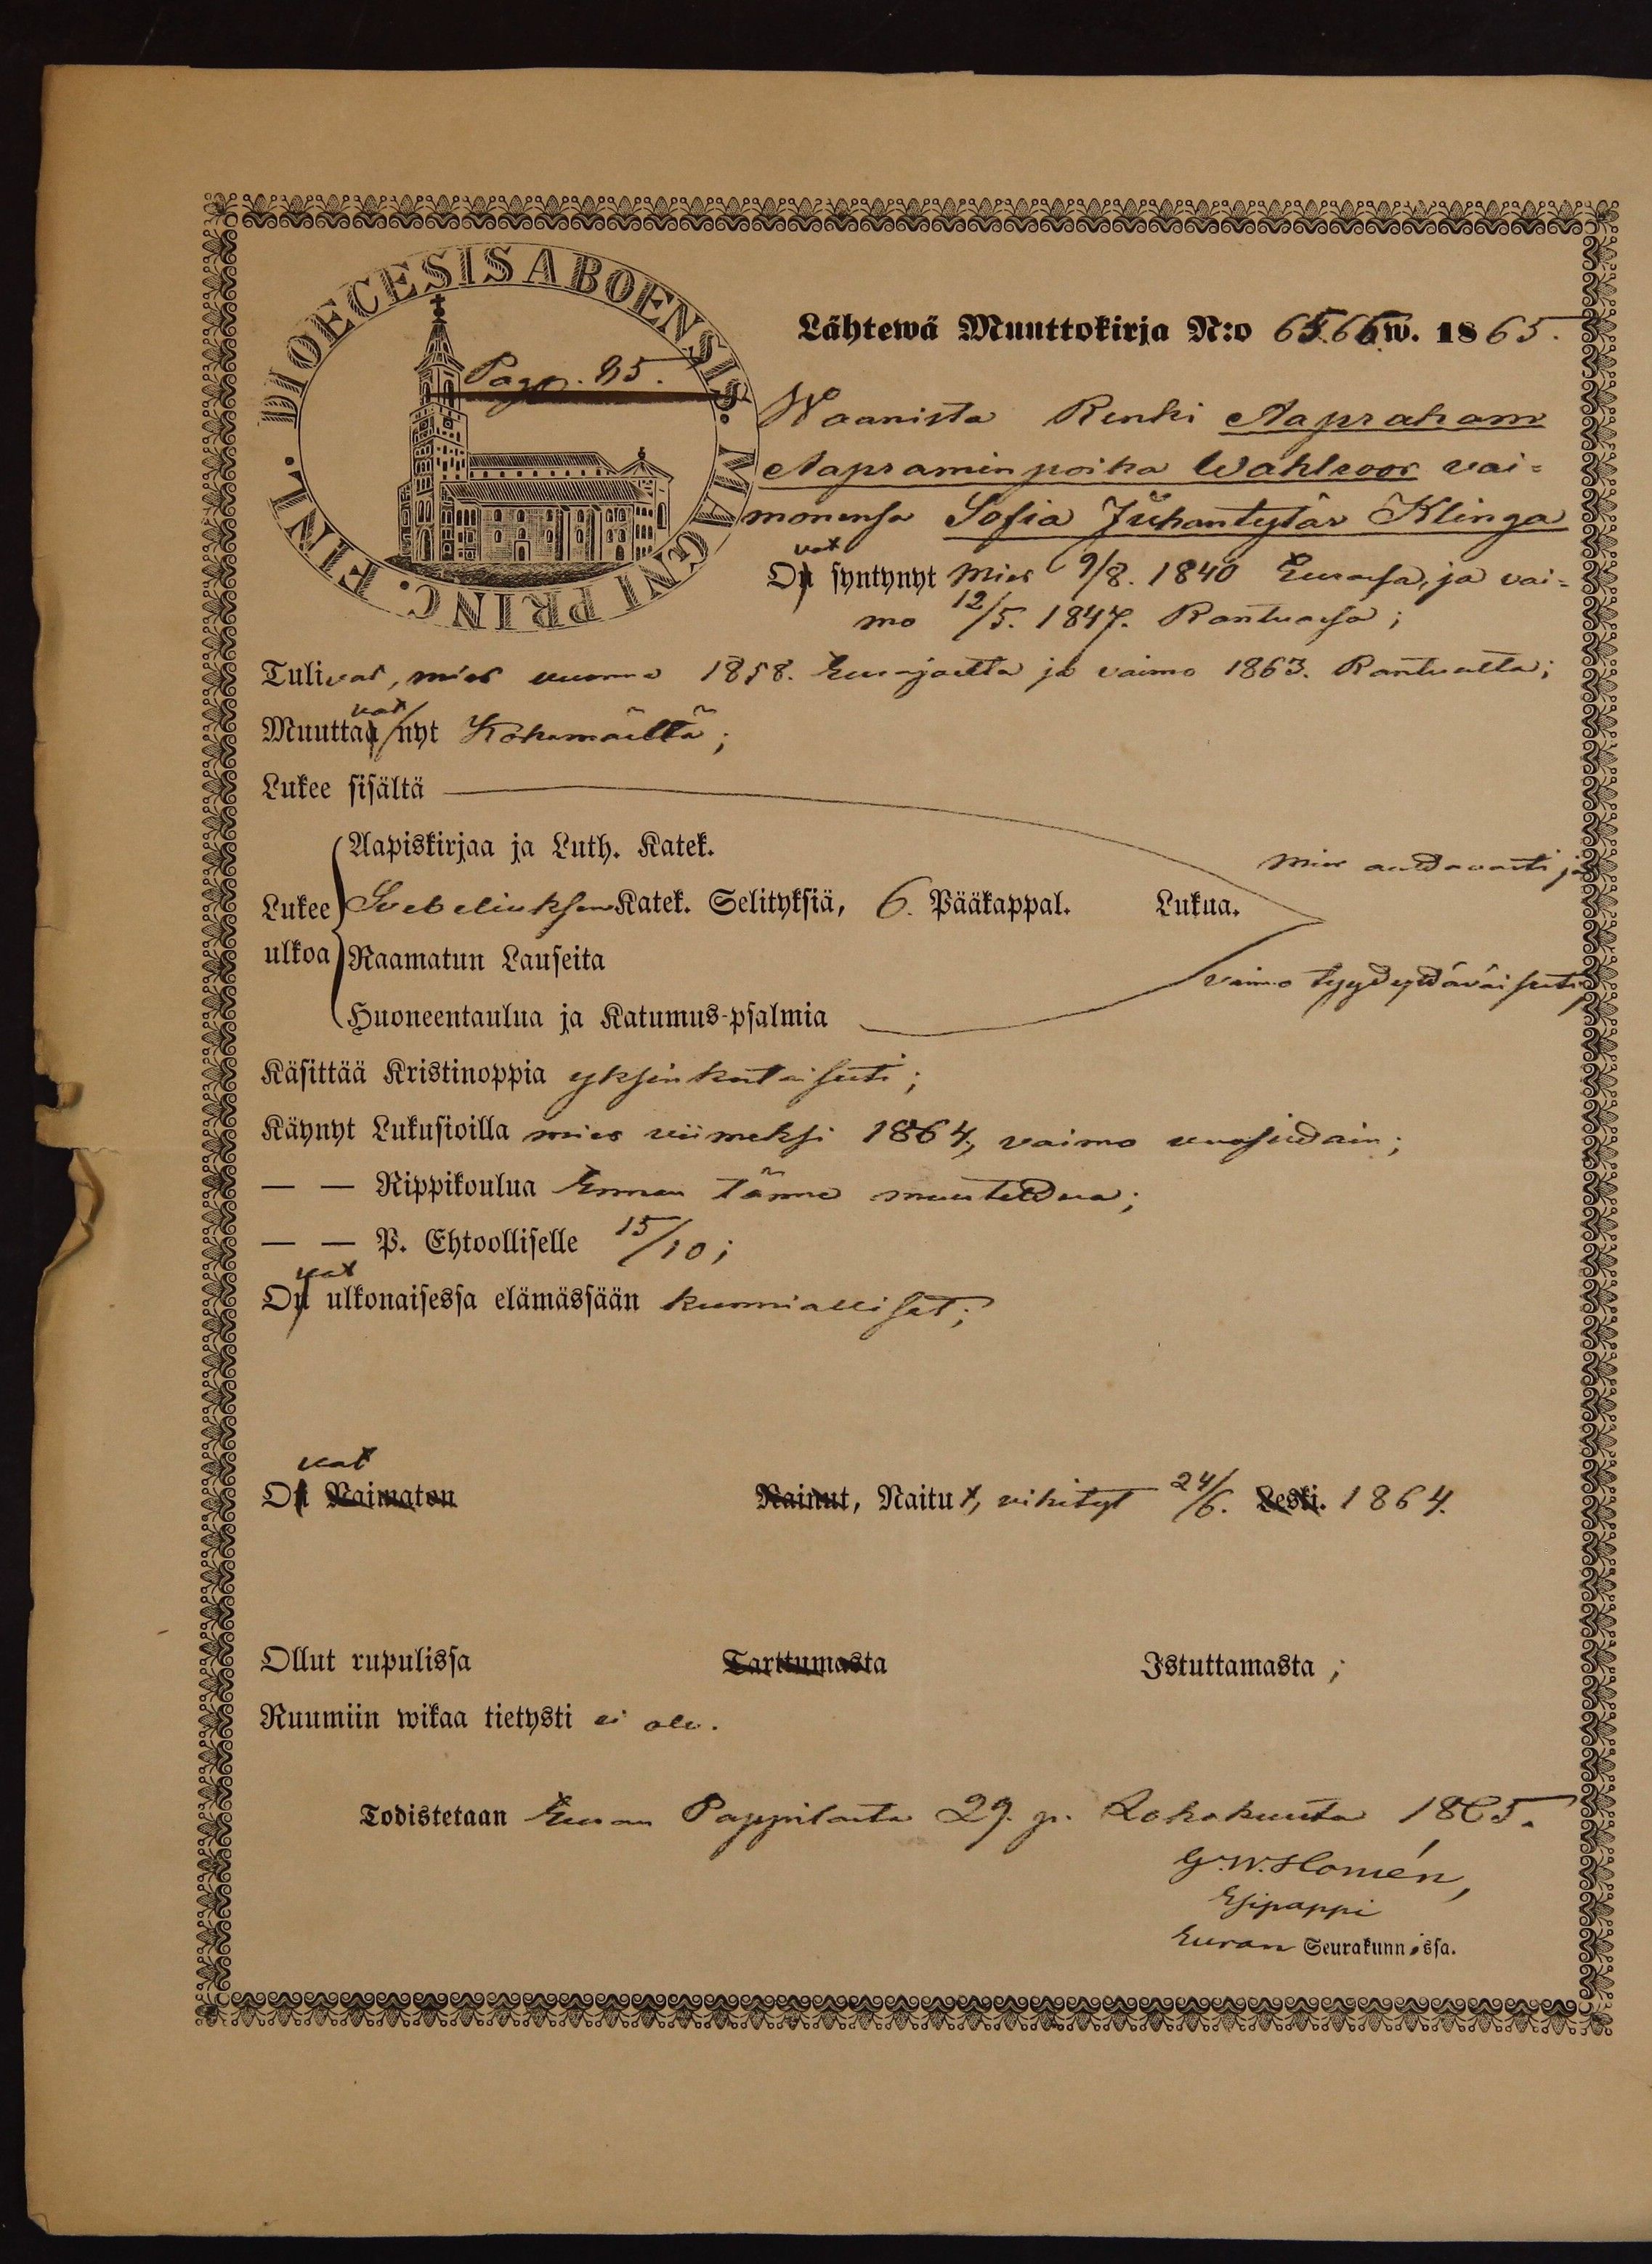 DIOECESIS ABOENSIS. MAGNI PRINC. FINL.
Pag. 85.
Lähtewä Muuttokirja N:o 65.66 w. 1865.
Renki Aapraham
Aapraminpoika Wahlroos vai=
monensa Sofia Juhantytär Klinga
vat
On syntynyt Mies 9/8. 1840 Eurassa, ja vai=
mo 12/5. 1847.
Tulivat, mies vuonna 1858. ja vaimo 1863.
vat
Muuttaa nyt
Lukee sisältä
Aapiskirjaa ja Luth. Katek.
mies auttavasti ja
Lukee Svebeliuksen Katek. Selityksiä, 6. Pääkappal. Lukua.
ulkoa Raamatun Lauseita
vaimo tyydyttäväisesti;
Huoneentaulua ja Katumus-psalmia
Käsittää Kristinoppia yksinkertaisesti;
Käynyt Lukusioilla mies viimeksi 1864, vaimo vuosittain;
— — Rippikoulua Ennen tänne muuttoansa;
— — P. Ehtoolliselle 15/10;
vat
On ulkonaisessa elämässään kunnialliset;
vat
On Naimaton Nainut, Naitut, vihityt 24/6. Leski. 1864.
Ollut rupulissa Tarttumasta Istuttamasta;
Ruumiin wikaa tietysti ei ole.
Todistetaan Euran Pappilasta 29. p. Lokakuuta 1865.
G. W. Homén,
Esipappi
Euran Seurakunnissa.